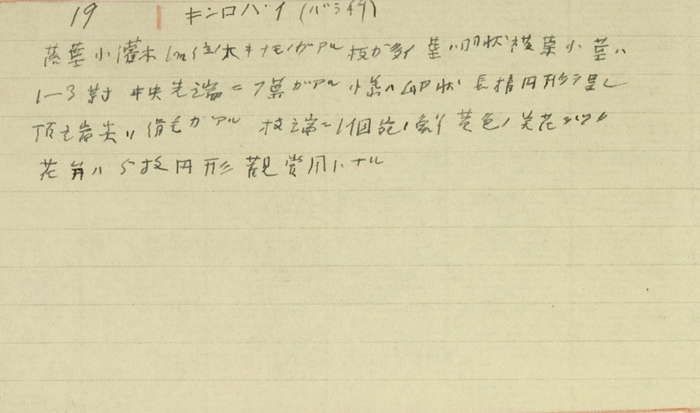 19 キンロバイ(バラ科)
落葉小灌木1m位ノ木キナモノガアル 枝ガ多イ 葉ハ羽状複葉小葉ハ
1−3対 中央先端ニ1葉ガアル 小葉ハ卵状 長楕円形ヲ呈シ
頂端尖リ 絹毛ガアル 枝端ニ1個 黄色ノ美花
花弁ハ5枚円形 観賞用トナル